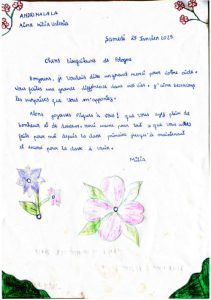 ANDRIMALALA
Aina Mitia Valeria
Samedi 25 Janvier 2025
Chers bienfaiteurs de Pologne
Bonjour, je voulais dire un grand merci pour votre aide.
Vous faites une grande différence dans ma vie. J'aime beaucoup
les surprises que vous m'apportez.
Alors joyeuses Pâques à vous ! que vous soyez plein de
bonheur et de douceur. merci encore pour tout ce que vous avez
faits pour moi depuis la classe primaire jusqu'à maintenant
et encore pour la classe à venir.
Mitia